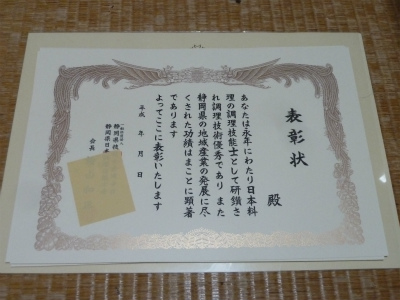 表彰状
殿
あなたは永年にわたり日本料
理の調理技能士として研鑽さ
れ調理技術優秀であり また
静岡県の地域産業の発展に尽
くされた功績はまことに顕著
であります
よってここに表彰いたします
平成 年 月 日
静岡県
静岡県日本
会長